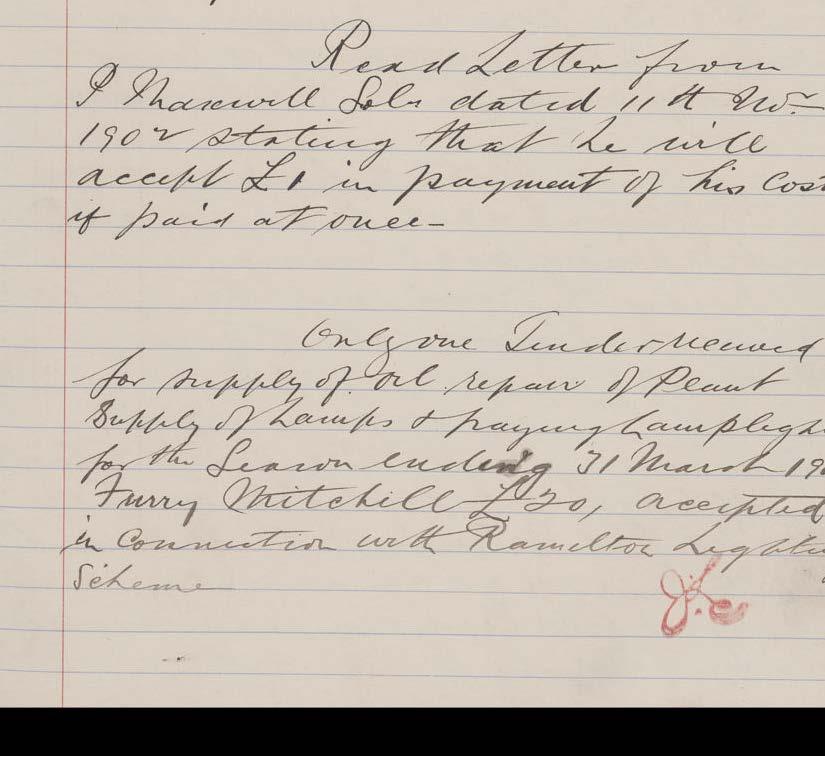 Read Letter from
P Maxwell Solr dated 11th Nov
1902 stating that he will
accept £1 in payment of his Cost
if paid at once—
Only one Tender received
for supply of oil repair of Plant
Supply of Lamps & paying Lampligh
for the Season ending 31 March 190
Mitchell £20, accepted
in Connection with Ramelton Lightin
Scheme